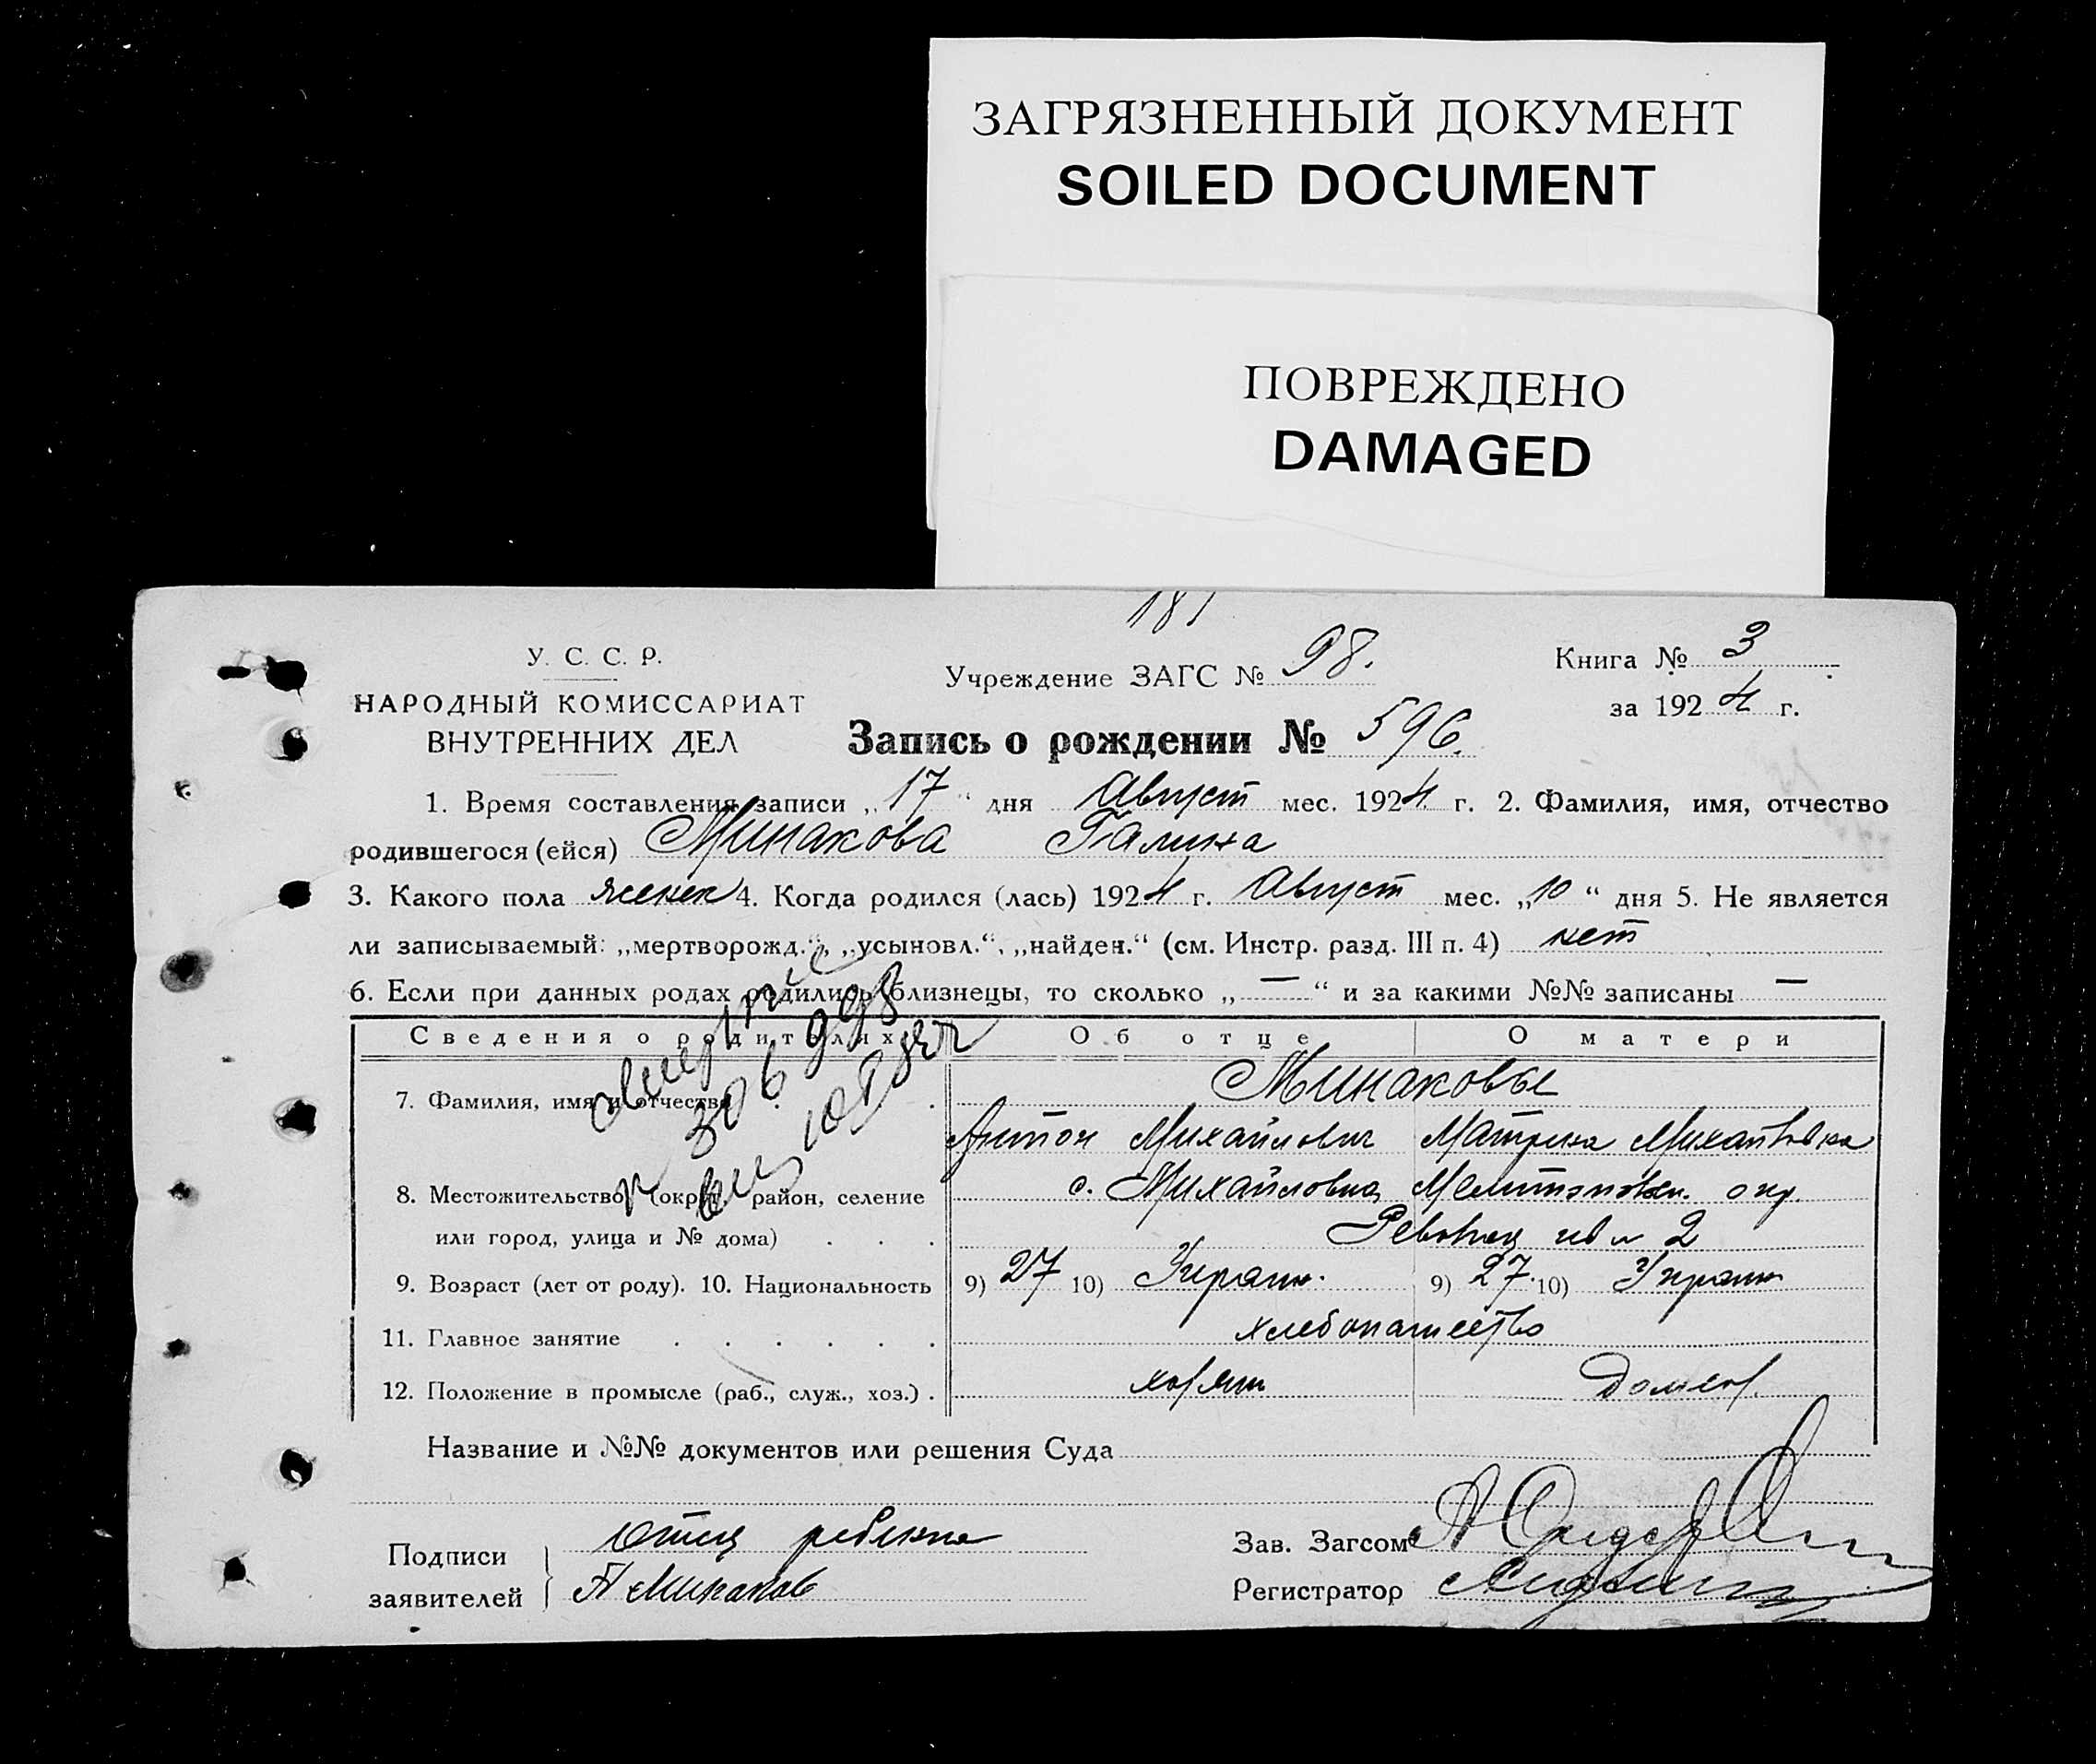 ЗАГРЯЗНЕННЫЙ ДОКУМЕНТ
SOILED DOCUMENT
ПОВРЕЖДЕНО
DAMAGED
181
У. С. С. Р.
НАРОДНЫЙ КОМИССАРИАТ
ВНУТРЕННИХ ДЕЛ
Учреждение ЗАГС № 98.
Книга № 3
за 1924 г.
Запись о рождении № 596.
1. Время составления записи „17“ дня Август мес. 1924 г. 2. Фамилия, имя, отчество
родившегося (ейся) Минакова Галина
3. Какого пола женск 4. Когда родился (лась) 1924 г. Август мес. „10“ дня 5. Не является
ли записываемый: „мертворожд.“, „усыновл.“, „найден.“ (см. Инстр. разд. III п. 4) нет
6. Если при данных родах родились близнецы, то сколько „—“ и за какими №№ записаны —
Сведения о родителях Об отце О матери
7. Фамилия, имя и отчество Минаковы
Антон Михайлович Матрена Михайловна
8. Местожительство (округ, район, селение с. Михайловка Мелитопольск. окр.
или город, улица и № дома) 2
9. Возраст (лет от роду). 10. Национальность 9) 27 10) Украин. 9) 27. 10) Украин
11. Главное занятие хлебопашество
12. Положение в промысле (раб., служ., хоз.) хозяин Домхоз.
Название и №№ документов или решения Суда
Подписи заявителей отец ребенка
А Минаков
Зав. Загсом
Регистратор